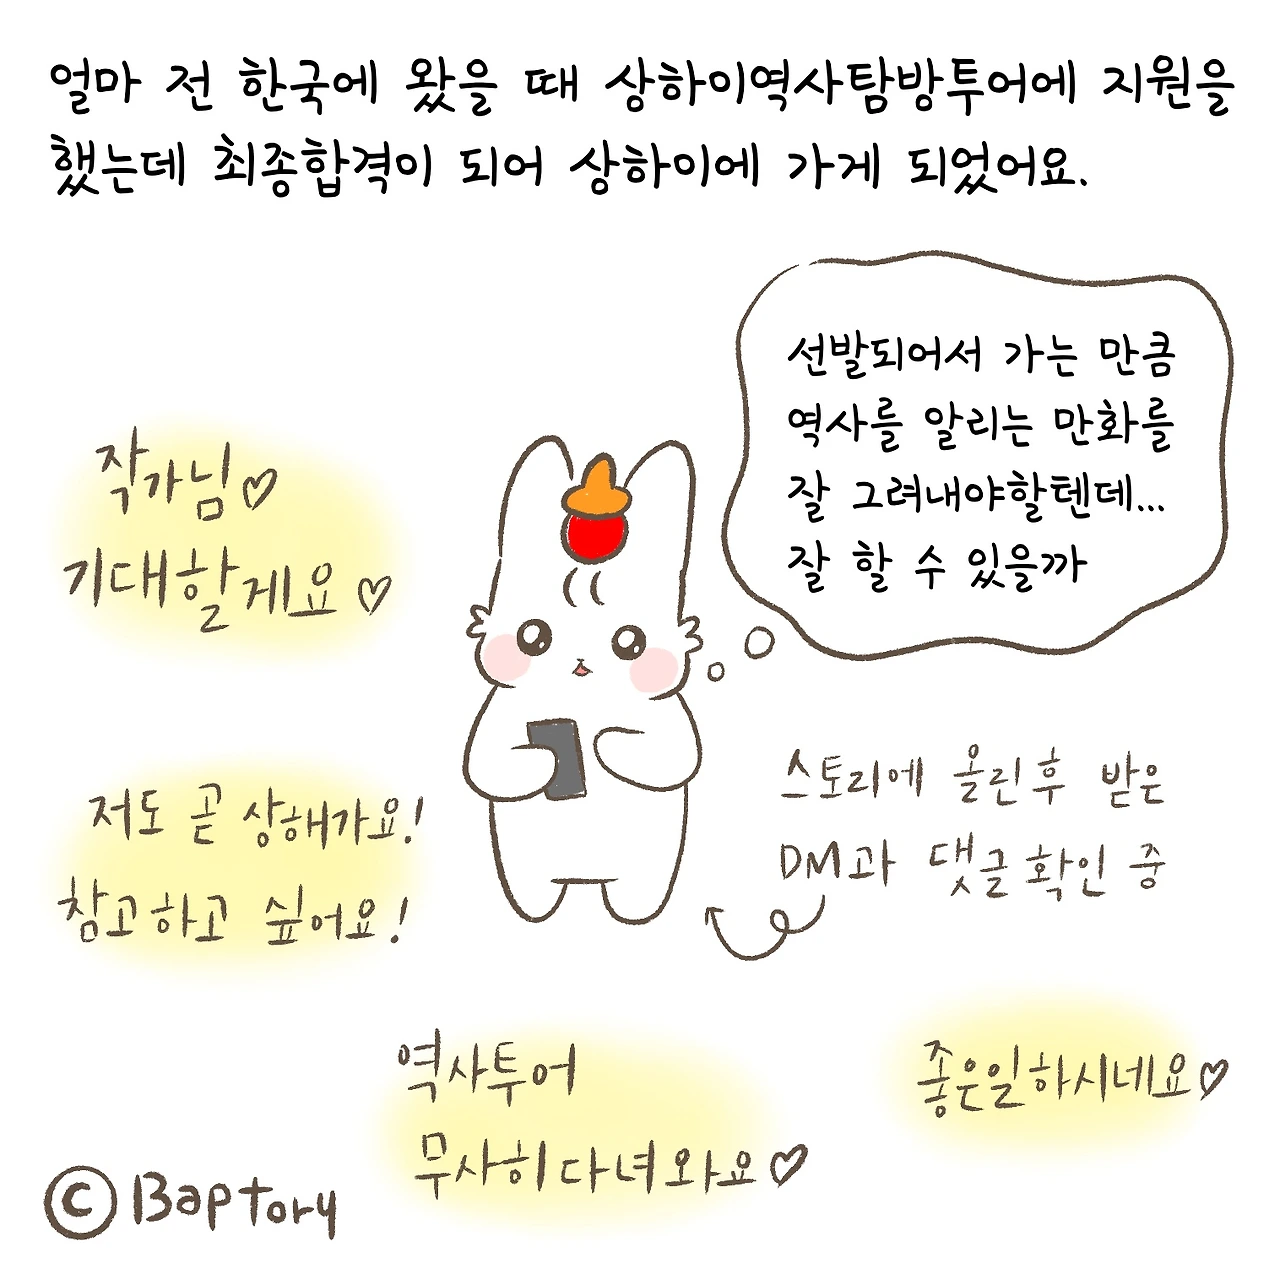 얼마 전 한국에 왔을 때 상하이역사탐방투어에 지원을
했는데 최종합격이 되어 상하이에 가게 되었어요.
선발되어서 가는 만큼
역사를 알리는 만화를
잘 그려내야할텐데...
잘 할 수 있을까
작가님♡
기대할게요♡
스토리에 올린후 받은
DM과 댓글확인 중
저도 곧 상해가요!
참고하고 싶어요!
역사투어
무사히다녀와요♡
좋은일하시네요♡
© Baptory